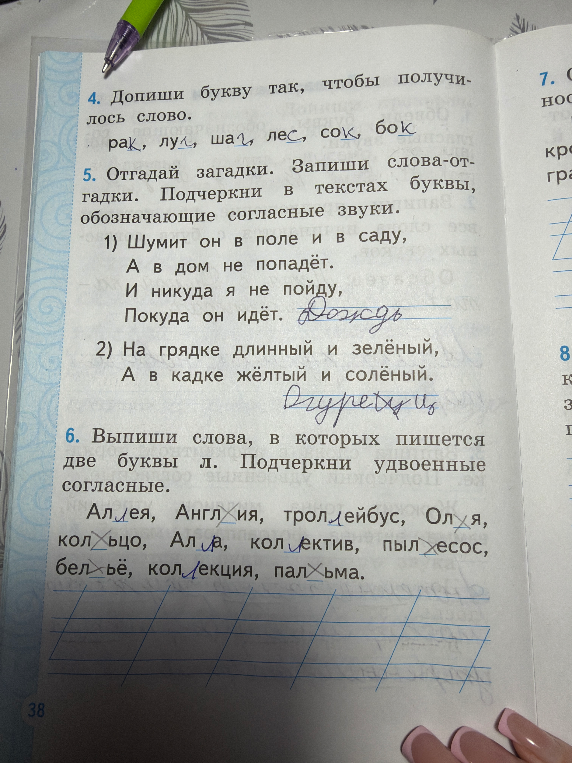 4. Допиши букву так, чтобы получи-
лось слово.
рак, лул, шаг, лес, сок, бок
5. Отгадай загадки. Запиши слова-от-
гадки. Подчеркни в текстах буквы,
обозначающие согласные звуки.
1) Шумит он в поле и в саду,
А в дом не попадёт.
И никуда я не пойду,
Покуда он идёт. Дождь
2) На грядке длинный и зелёный,
А в кадке жёлтый и солёный.
Огурец ц
6. Выпиши слова, в которых пишется
две буквы л. Подчеркни удвоенные
согласные.
Аллея, Англ ия, троллейбус, Ол я,
кол ьцо, Алла, коллектив, пыл есос,
бел ьё, коллекция, пал ьма.
38
7.
нос
кро
гра
8
к
з